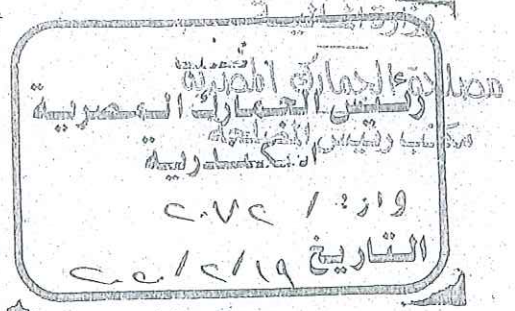 وزارة المالية
مصلحة الجمارك المصرية
رئيس الجمارك المصرية
مكتب رئيس المصلحة
الإسكندرية
وارد / ٢٠٧٢
التاريخ ١٩/٢/٢٠٢٠